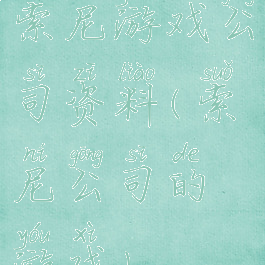 索尼游戏公
sī zī liào suǒ
司资料(索
ní gōng sī de
尼公司的
yóu xì
游戏)